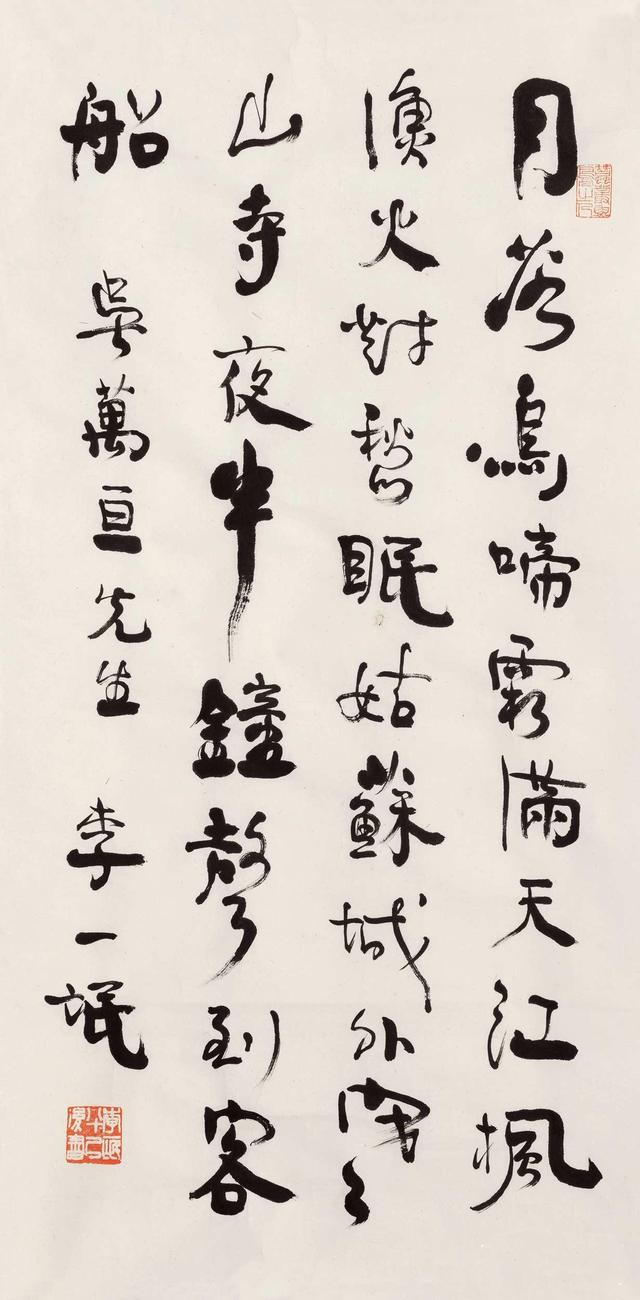 月落烏啼霜滿天江楓
漁火對愁眠姑蘇城外寒
山寺夜半鐘聲到客
船 吳萬亘先生 李一氓